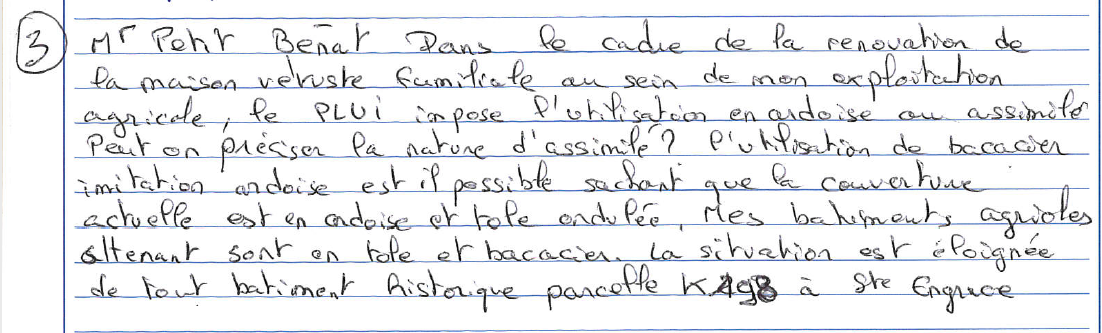 ③ Mr Petit Beñat Dans le cadre de la renovation de
la maison vetuste familiale au sein de mon exploitation
agricole, le PLUi impose l'utilisation en ardoise ou assimilé
Peut on préciser la nature d'assimilé? l'utilisation de bacacier
imitation ardoise est il possible sachant que la couverture
actuelle est en ardoise et tole ondulée, Mes batiments agricoles
attenant sont en tole et bacacier. La situation est éloignée
de tout batiment historique parcelle K498 à Ste Engrace